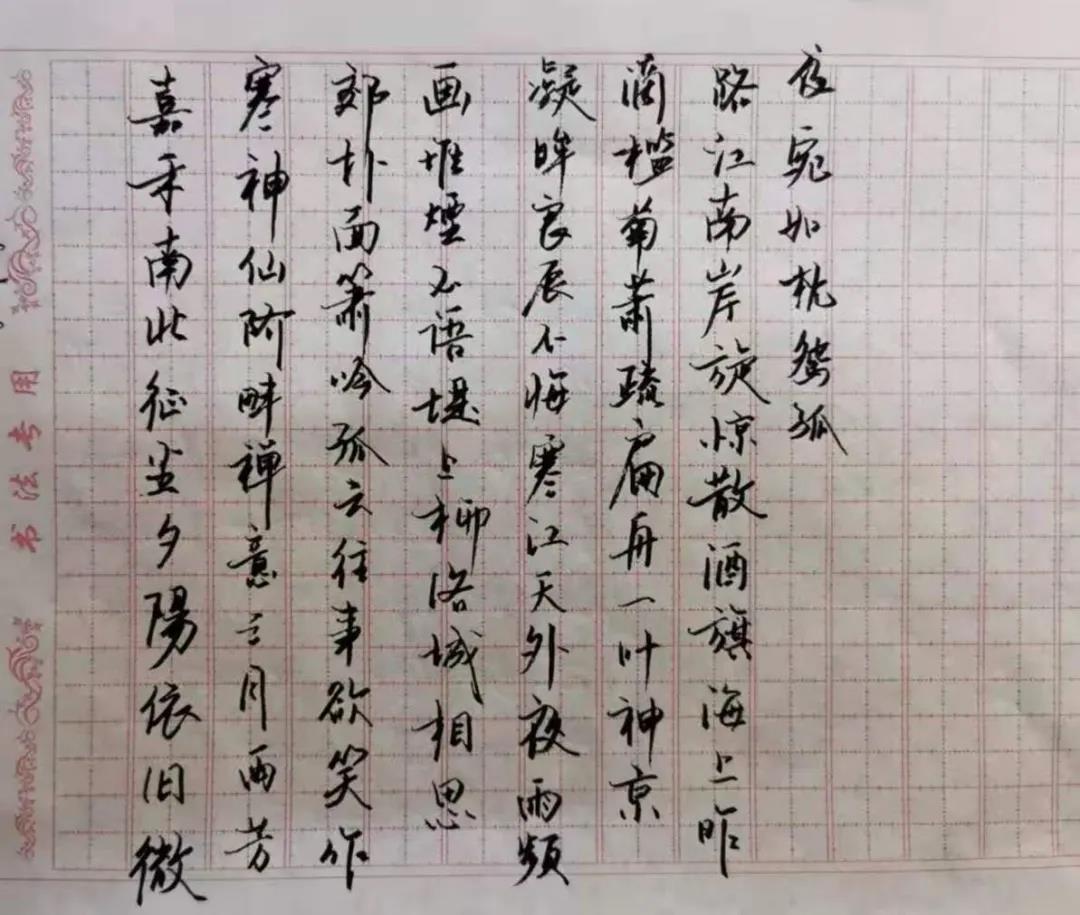 书法专用
嘉禾南北征尘夕陽依旧微
寒神仙阶畔禅意三月雨芳
郊扑面箫吟孤云往事欲笑作
画堆煙不语堤上柳洛城相思
凝眸良辰不悔寒江天外夜雨频
滴槛菊萧疏扁舟一叶神京
路江南岸旋惊散酒旗海上昨
夜宛如枕鸳孤